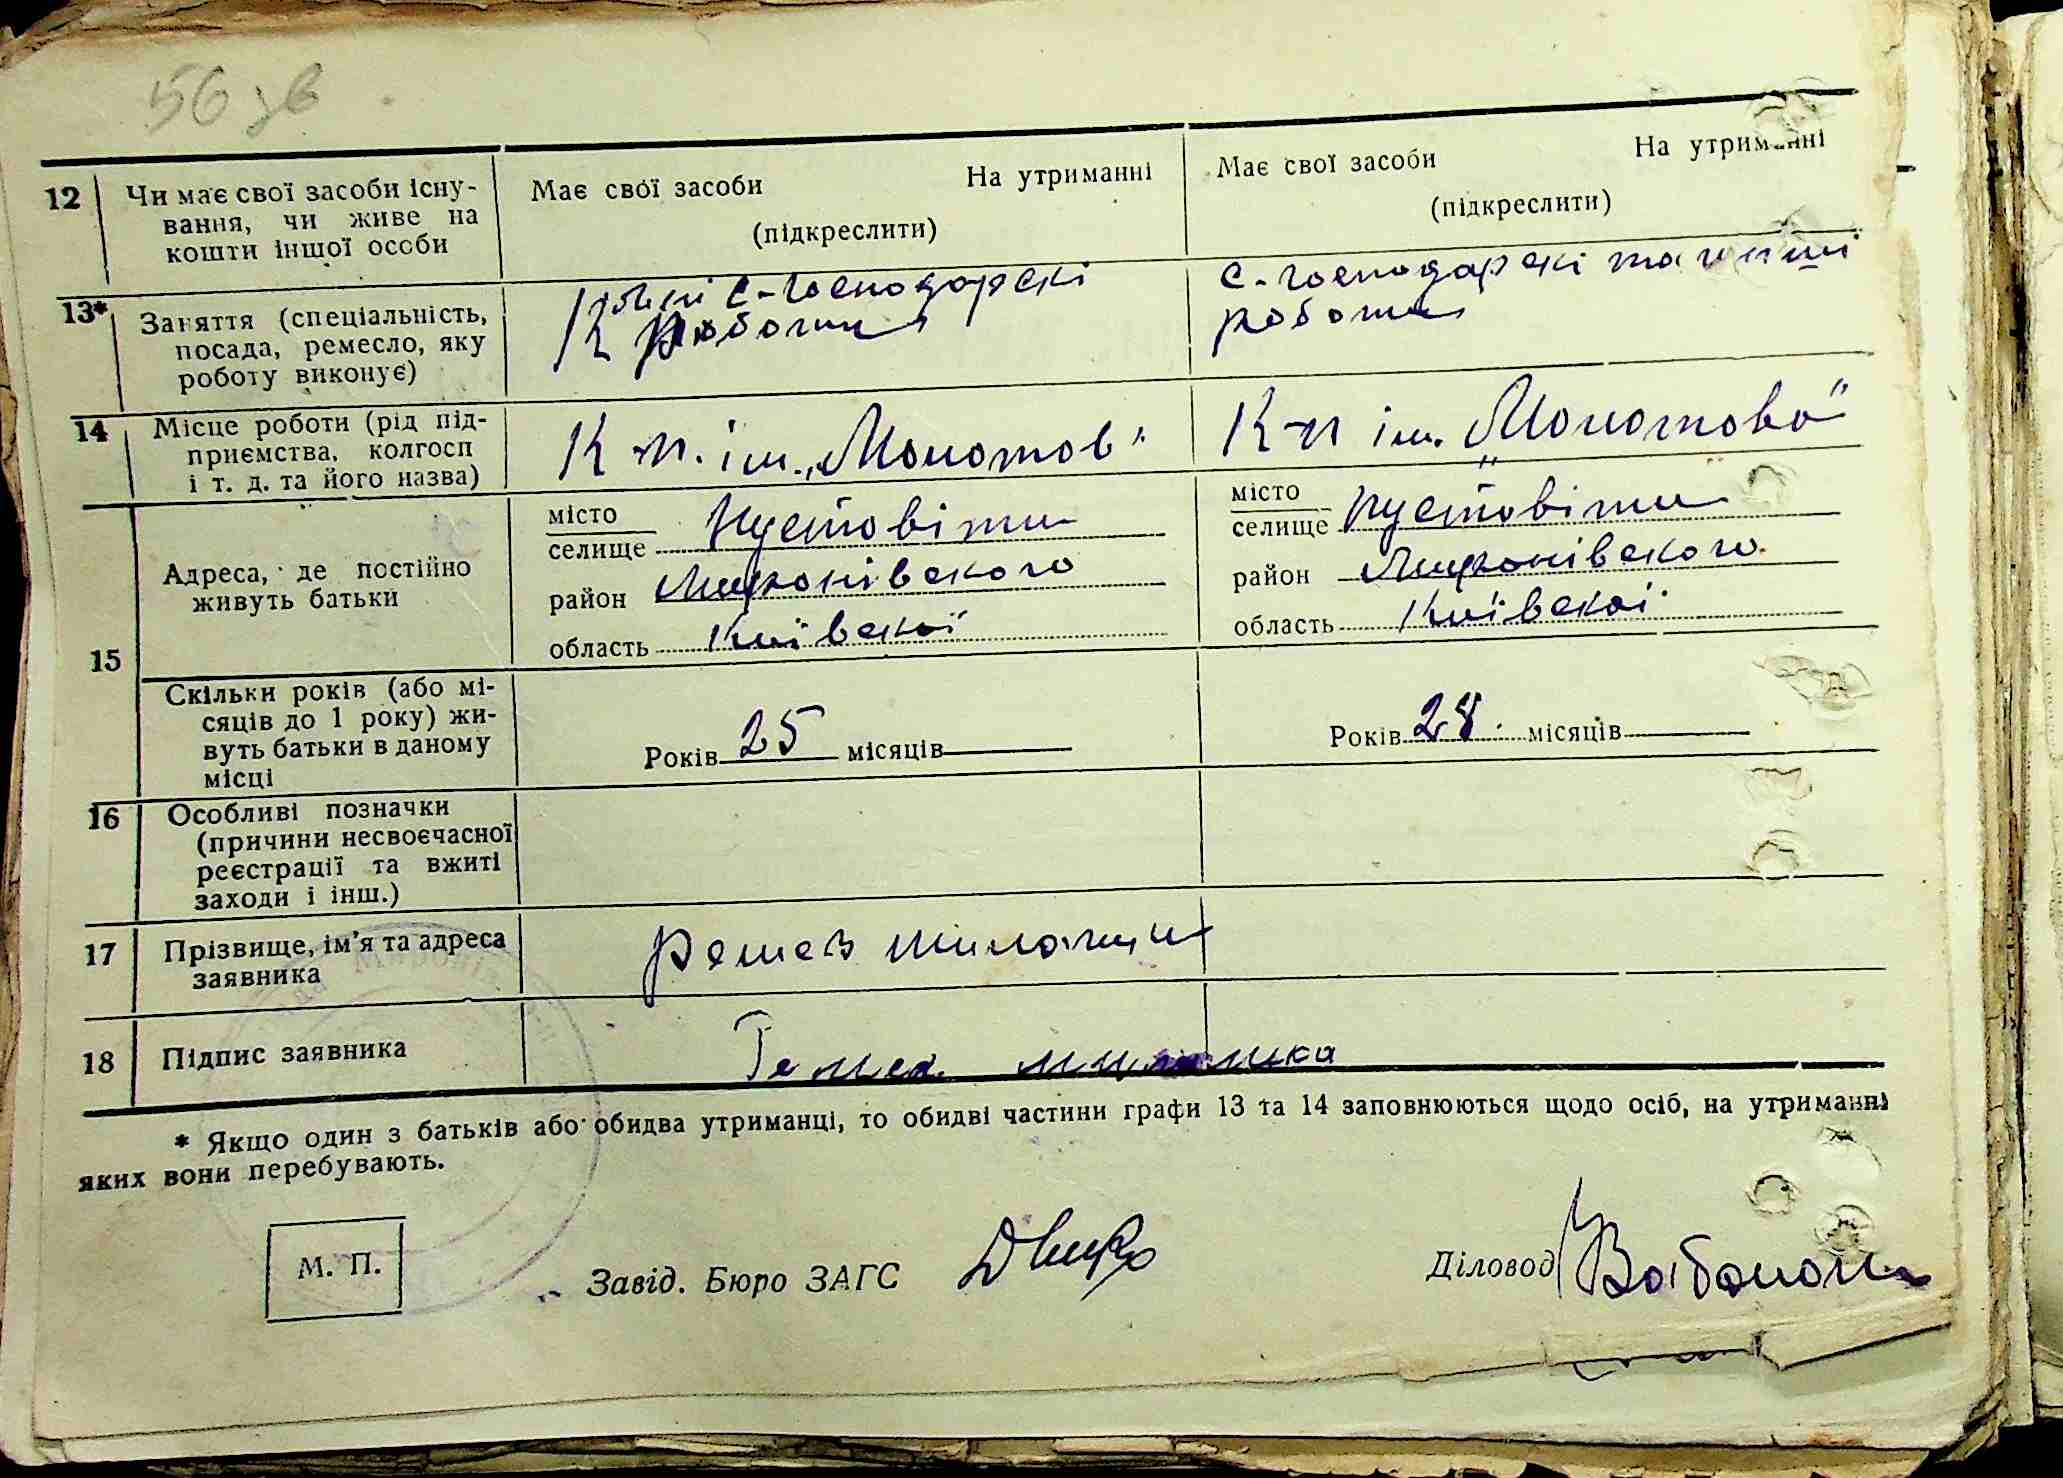 56 зв
12 Чи має свої засоби існу-
вання, чи живе на
кошти іншої особи
Має свої засоби На утриманні
(підкреслити)
Має свої засоби На утриманні
(підкреслити)
13* Заняття (спеціальність,
посада, ремесло, яку
роботу виконує)
с-господарскі
К роботи
с-господарскі та інші
роботи
14 Місце роботи (рід під-
приємства, колгосп
і т. д. та його назва)
К-п. ім. „Молотов"
К-п ім. „Молотова"
15 Адреса, де постійно
живуть батьки
місто
селище Пустовіти
район Миронівского
область Київскої
місто
селище Пустовіти
район Миронівского
область Київскої
Скільки років (або мі-
сяців до 1 року) жи-
вуть батьки в даному
місці
Років 25 місяців
Років 28 місяців
16 Особливі позначки
(причини несвоєчасної
реєстрації та вжиті
заходи і інш.)
17 Прізвище, ім'я та адреса
заявника
18 Підпис заявника
* Якщо один з батьків або обидва утриманці, то обидві частини графи 13 та 14 заповнюються щодо осіб, на утриманні
яких вони перебувають.
М. П.
Завід. Бюро ЗАГС
Діловод